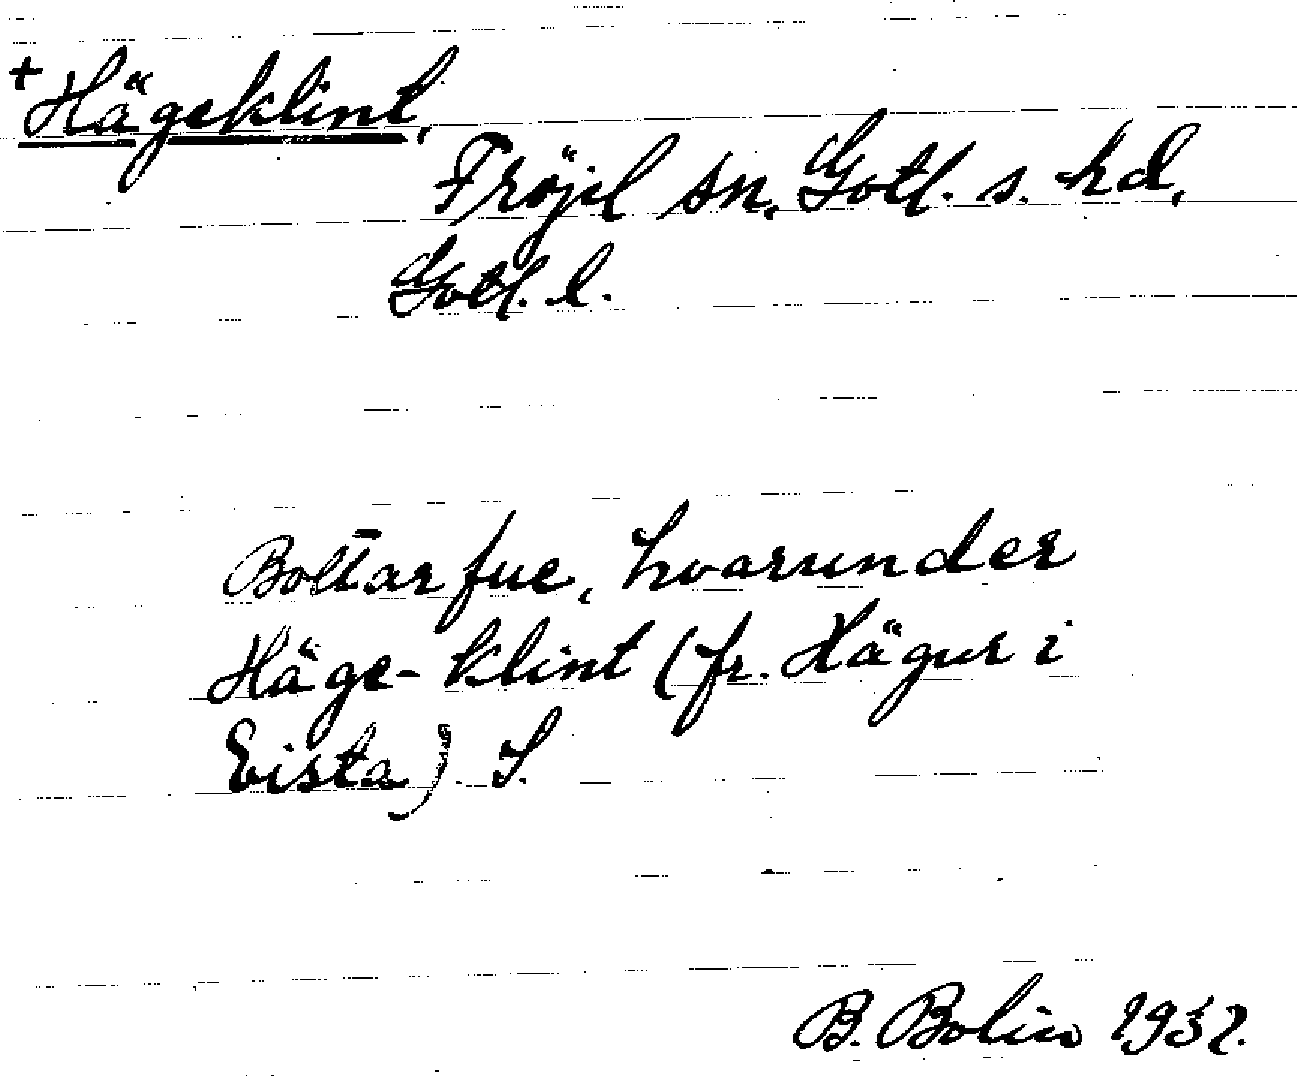 + Hägeklint,
Fröjel sn, Gotl. s. hd,
Gotl. l.
Bottarfue, hvarunder
Häge-klint (fr. Hägur i
Eista) S.
B. Bolin 1937.